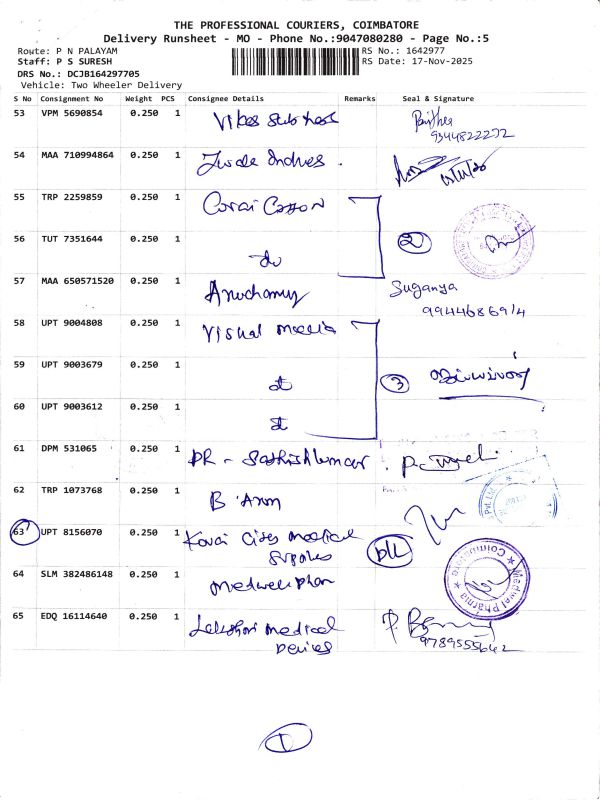 THE PROFESSIONAL COURIERS, COIMBATORE
Delivery Runsheet - MO - Phone No.:9047080280 - Page No.:5
Route: P N PALAYAM RS No.: 1642977
Staff: P S SURESH RS Date: 17-Nov-2025
DRS No.: DCJB164297705
Vehicle: Two Wheeler Delivery
S No Consignment No Weight PCS Consignee Details Remarks Seal & Signature
53 VPM 5690854 0.250 1
9344822272
54 MAA 710994864 0.250 1
55 TRP 2259859 0.250 1
56 TUT 7351644 0.250 1 do 2
57 MAA 650571520 0.250 1 Suganya
9944686914
58 UPT 9004808 0.250 1 Vishal media
59 UPT 9003679 0.250 1 3
60 UPT 9003612 0.250 1
61 DPM 531065 0.250 1 DR - Sathishkumar
62 TRP 1073768 0.250 1 B Arun
63 UPT 8156070 0.250 1 Kovai Cites medical
64 SLM 382486148 0.250 1 Medwell phar
Medwel Pharma
Coimbatore
65 EDQ 16114640 0.250 1 Lakshmi medical
Devices 9789555642
1